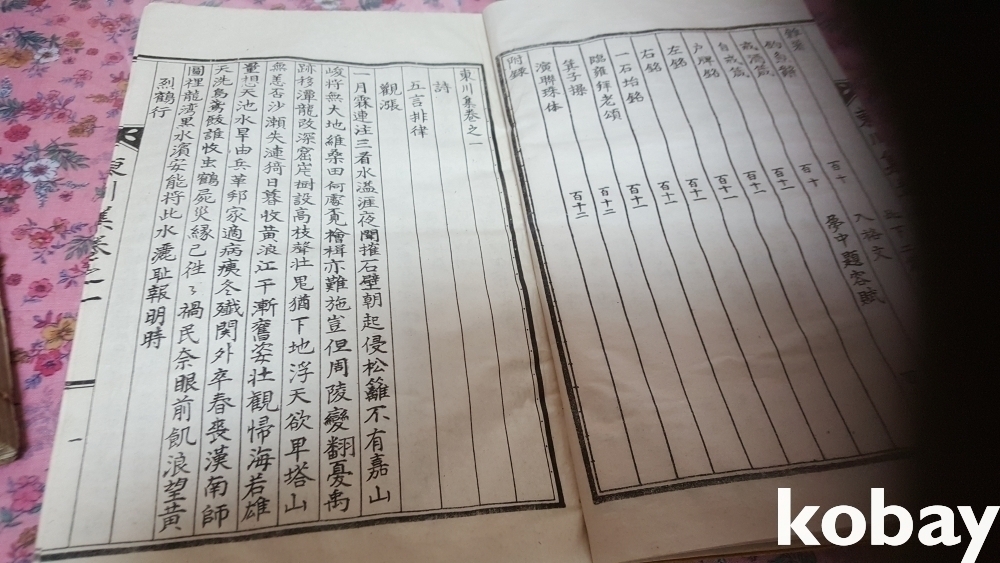 雜著
釣島辭
戒酒箴 百十一
自戒箴 百十一
戶牌銘 百十一
左銘 百十一
右銘 百十一
一石枱銘 百十一
臨雍拜老頌 百十二
箕子操 百十二
演聯珠体
附錄
夢中題客賦
東川集卷之一
詩
五言排律
觀漲
一月霖連注三看水溢涯夜聞摧石壁朝起侵松籬不有嘉山
峻將無大地維桑田何處覓檜楫亦難施豈但周陵變翻憂禹
跡移潭龍改深窟岸樹設高枝聲壯思猶下地浮天欲卑塔山
無恙否沙瀨失漣猗日暮牧黃浪江干漸奮姿壯觀帰海若雄
量想天池水旱由兵革邦家適病痍冬殲関外卒春喪漢南師
天洗烏鳶骸誰收虫鶴屍災緣已徃々禍民奈眼前飢浪望黃
圖裡龍湾黑水濱安能將此水灑耻報明時
烈鶴行
東川集卷之一
一
kobay